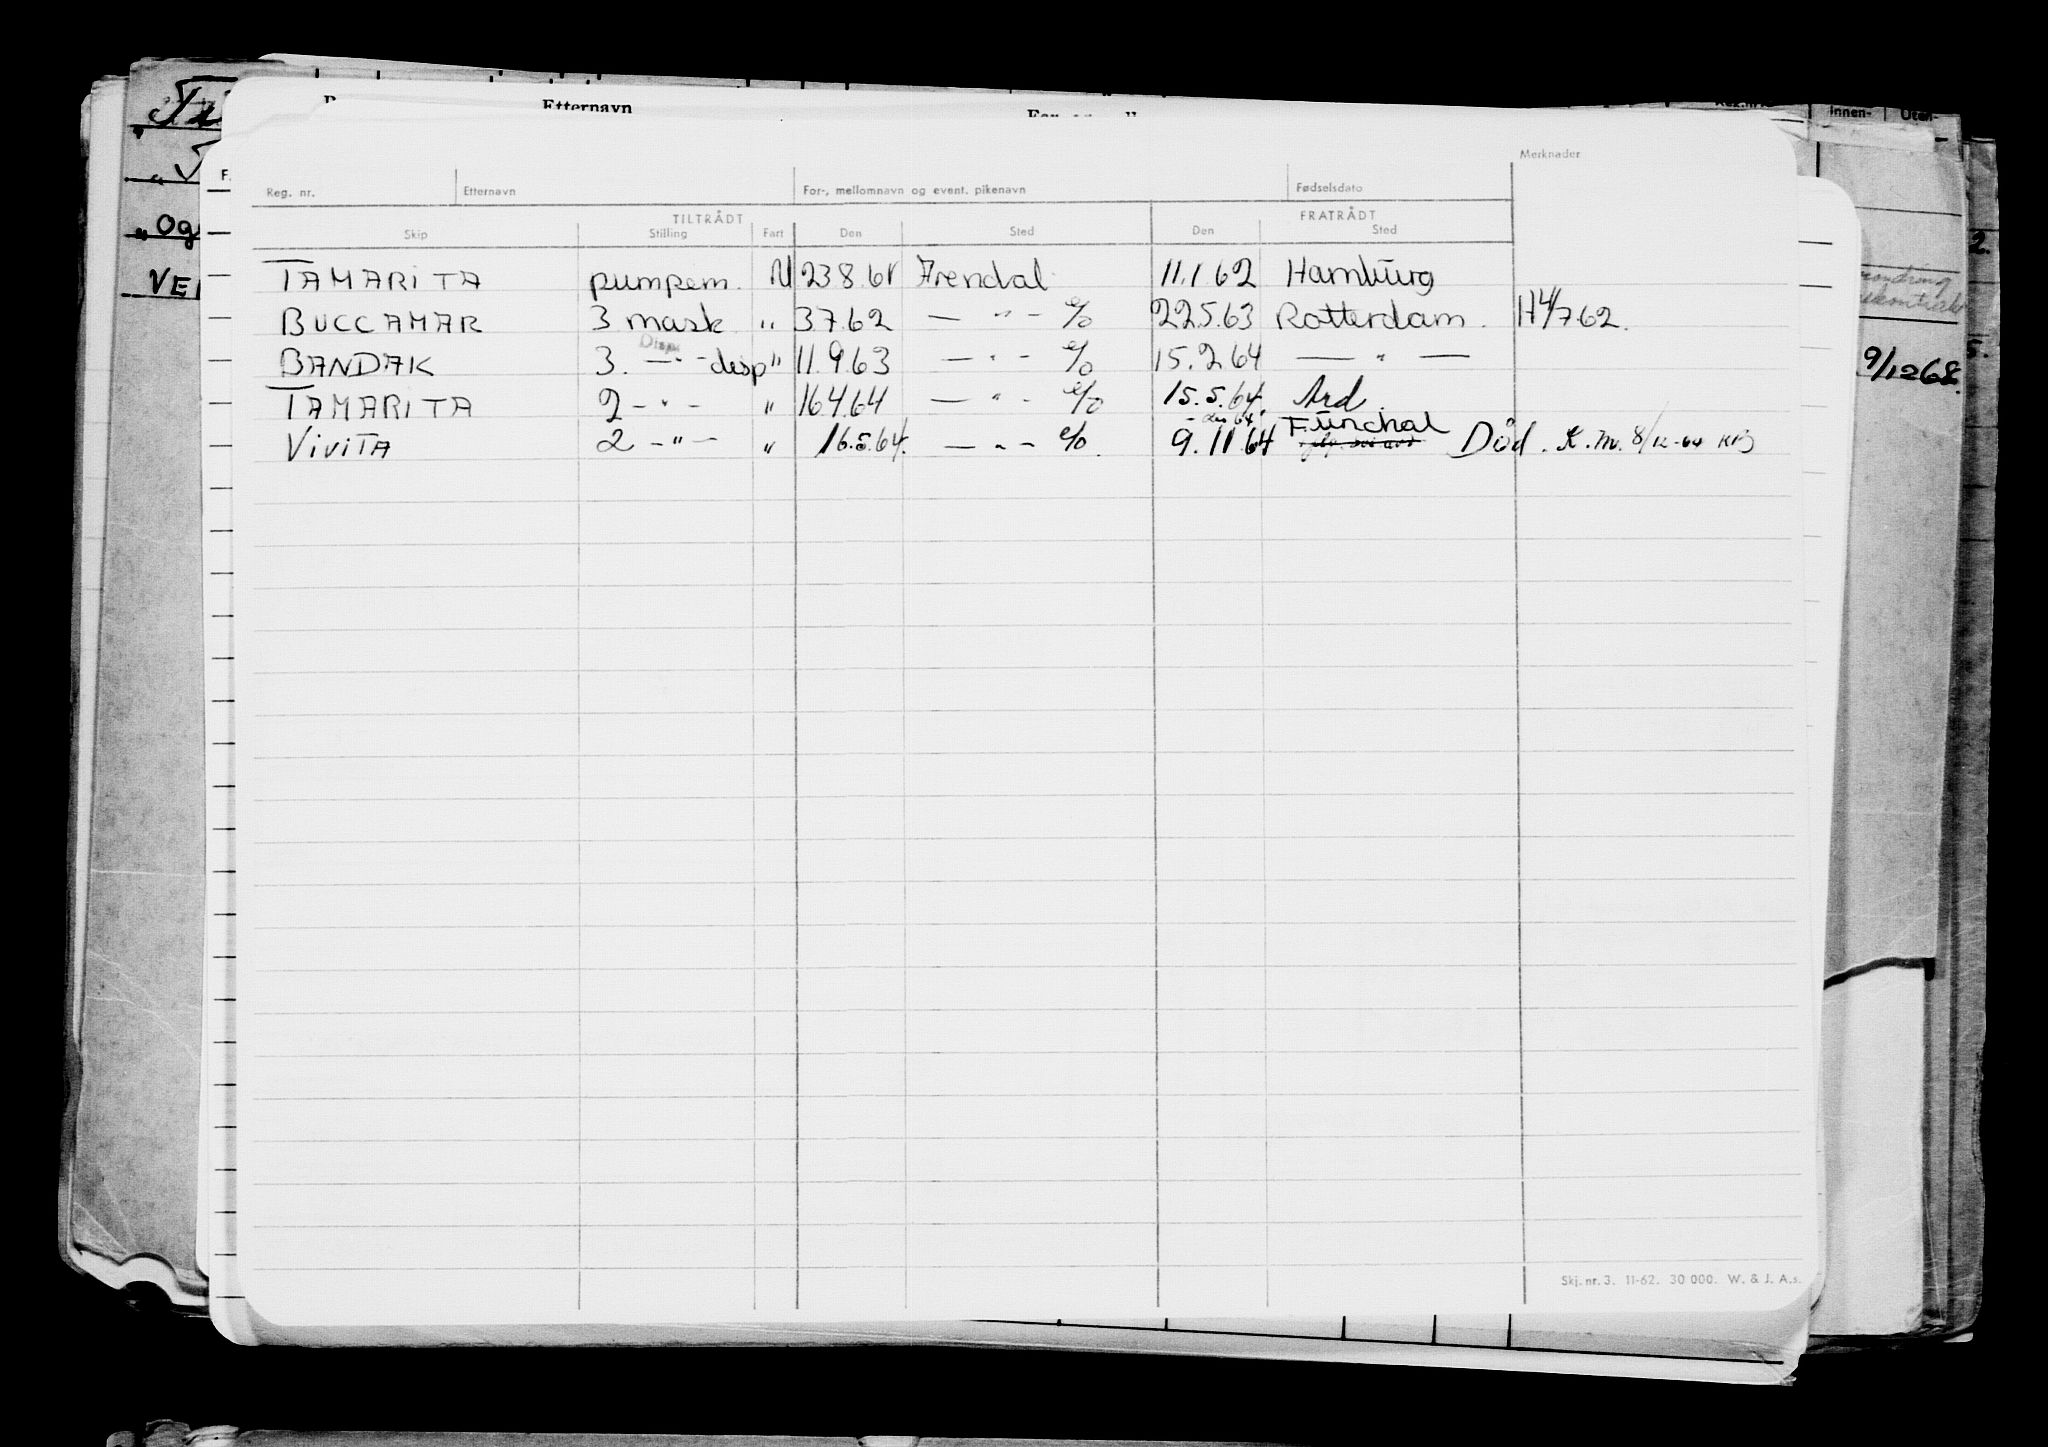 Etternavn
Innen-
Merknader
Reg. nr. Etternavn For-, mellomnavn og event. pikenavn Fødselsdato
TILTRÅDT FRATRÅDT
Skip Stilling Fart Den Sted Den Sted
TAMARITA pumpem. U 23.8.61 Arendal 11.1.62 Hamburg
BUCCAMAR 3 mask " 3.7.62 — " — % 22.5.63 Rotterdam. H4/7.62.
Disp.
BANDAK 3. — " — desp " 11.9.63 — " — % 15.2.64 — " —
TAMARITA 2 — " — " 16.4.64 — " — % 15.5.64. Ard.
VIVITA 2 — " — " 16.5.64. — " — %. 9.11.64 Funchal Død. K.m. 8/12-64
9/1268.
Og
VE
Skj. nr. 3. 11-62. 30 000. W. & J. A.s.